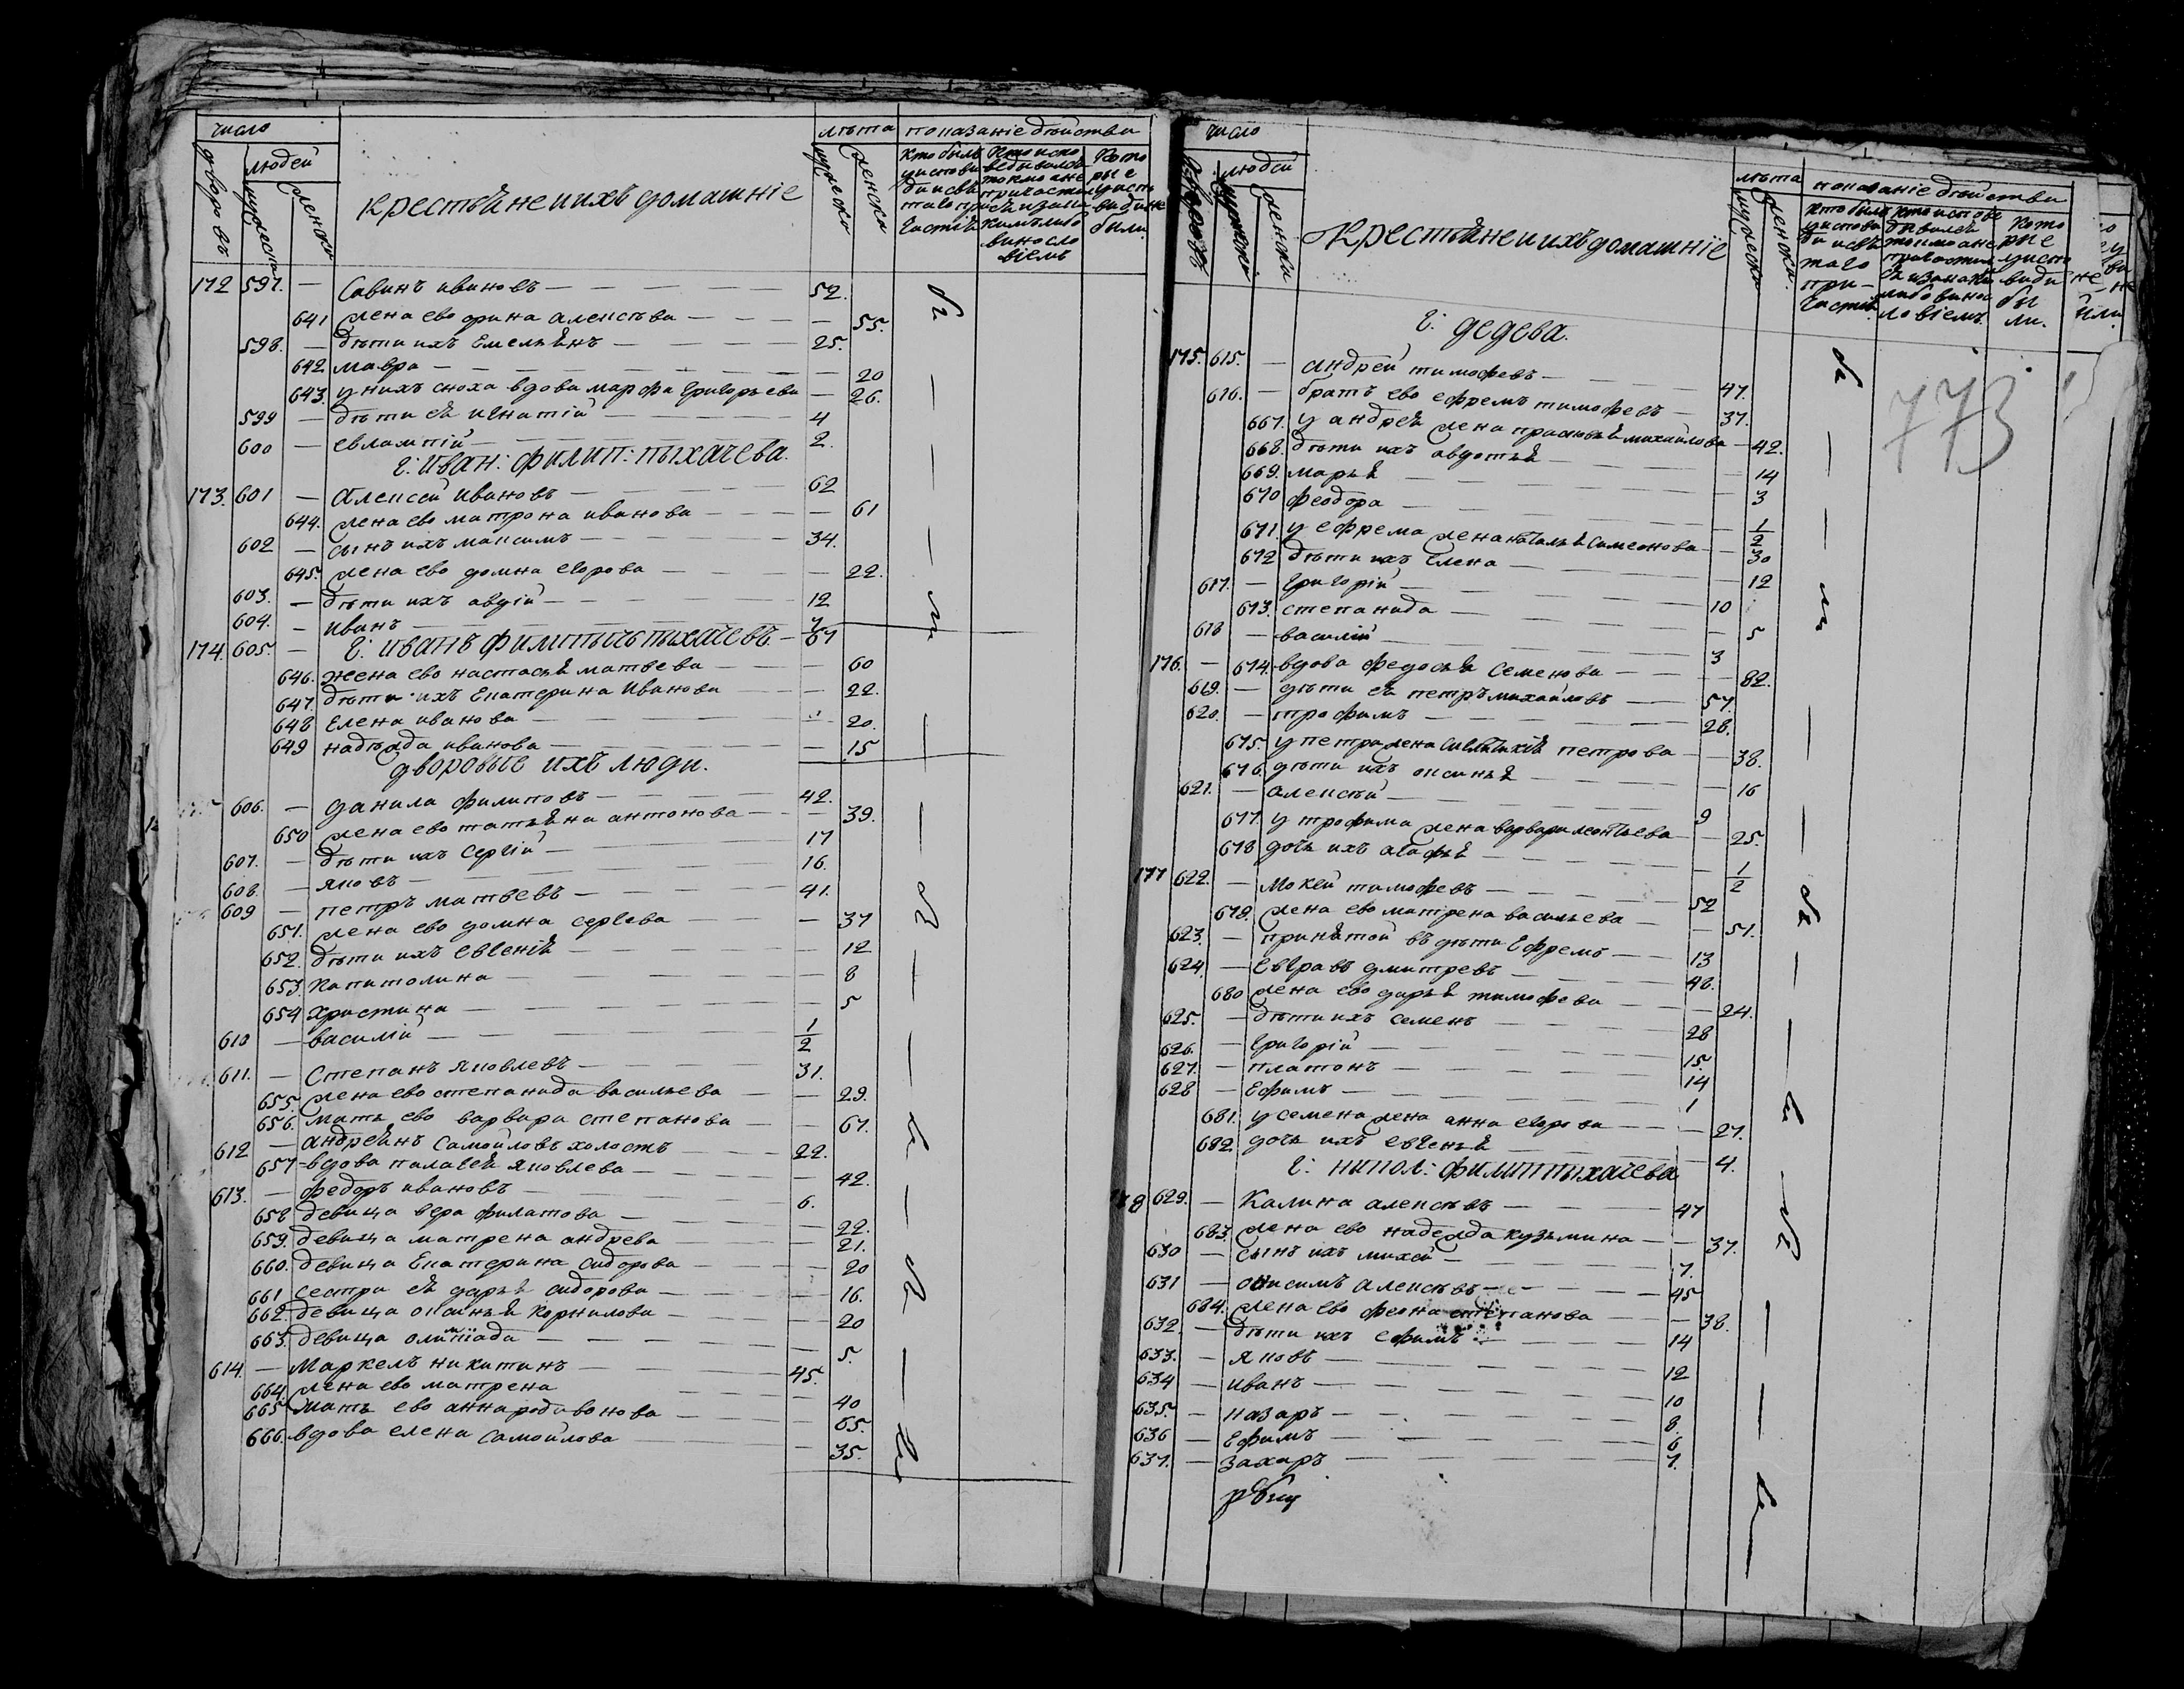 число
людей
дворовъ
мужеска
женска
крестьяне и ихъ домашніе
лѣта
мужеска
женска
показаніе дѣйства
Кто былъ у исповѣди и свѣтаго причастія
Кто исповѣдывался токмо а не причастился и за какимъ либо винословіемъ
Которые у исповѣди не были
172 597. — Савинъ ивановъ — 52.
641 жена ево ирина алексѣва — 55.
598. — дѣти ихъ Емельянъ — 25.
642 мавра — 20
643. у нихъ сноха вдова марфа григорьева — 26.
599 — дѣти ея игнатій — 4
600 — евлампій — 2.
Г: иван: филип: пыхачева.
173. 601 — Алексей ивановъ — 62
644. жена ево матрона иванова — 61
602 — сынъ ихъ максимъ — 34.
645. жена ево домна егорова — 22.
603. — дѣти ихъ авдій — 12
604. — иванъ — 7
174. 605. — Г: иванъ филипычъ пыхачевъ — 67
646. жена ево настасья матвева — 60
647. дѣти ихъ Екатерина Иванова — 22.
648 Елена иванова — 20.
649 надежда иванова — 15
дворовые ихъ люди.
606. — данила филиповъ — 42.
650 жена ево татьяна антонова — 39.
607. — дѣти ихъ Сергій — 17
608. — яковъ — 16.
609 — петръ матвевъ — 41.
651. жена ево домна сергева — 37
652. дѣти ихъ Евгенія — 12
653. Капитолина — 8
654 христина — 5
610 — василій — 1/2
611. — Степанъ яковлевъ — 31.
655. жена ево степанида васильева — 29.
656. мать ево варвара степанова — 67.
612 — андреянъ самойловъ холостъ 22.
657 — вдова палагея яковлева — 42.
613. — федоръ ивановъ — 6.
658 девица вера филатова — 22.
659. девица матрена андрева — 21.
660. девица Екатерина сидорова — 20
661 сестра ея дарья сидорова — 16.
662. девица оксинья корнилова — 20
663. девица олимпіада — 5.
614. — Маркелъ никитинъ — 45.
664. жена ево матрена 40
665 мать ево анна родивонова — 65.
666. вдова елена самойлова — 35.
число
людей
дворовъ
мужеска
женска
Крестьяне и ихъ домашніе
лѣта
мужеска
женска
показаніе дѣйства
Кто былъ у исповѣди и свѣтаго причастія
кто исповѣдывался токмо а не причастился и за каким либо винословіемъ.
Которые у исповѣди не были.
773
Г: дедева.
175. 615. — андрей тимофевъ — 47.
616. — братъ ево ефремъ тимофевъ — 37.
667. у андрея жена прасковья михайлова — 42.
668. дѣти ихъ авдотья — 14
669. марья — 3
670 феодора — 1/2
671. у ефрема жена наталья симеонова — 30
672 дѣти ихъ Елена — 12
617. — григорій — 10
673. степанида — 5
618 — василій — 3
176. — 674. вдова федосья семенова — 82.
619. — дѣти ея петръ михайловъ — 57.
620. — трофимъ — 28.
675. у петра жена петрова — 38.
676. дѣти ихъ оксинья — 16
621. — алексѣй — 9
677. у трофима жена варвара леонтьева — 25.
678 дочь ихъ агафья — 1/2
177 622. — Мокей тимофевъ — 52
679. жена ево матрена васильева — 51.
623. — принятой въ дѣти Ефремъ — 13
624. — Евгравъ дмитревъ — 48.
680 жена ево дарья тимофева — 24.
625. — дѣти ихъ семенъ — 28
626. — григорій — 15.
627. — платонъ — 14
628 — Ефимъ — 1
681. у семена жена анна егорова — 27.
682. дочь ихъ евгенья — 4.
Г: никол: филип пыхачева
178 629. — Калина алексѣвъ — 47
683. жена ево надежда кузьмина — 37.
630 — сынъ ихъ михей — 7.
631 — онисимъ алексѣвъ — 45
684. жена ево феона степанова — 38.
632. — дѣти ихъ ефимъ — 14
633. — яковъ — 12
634 — иванъ — 10
635. — назаръ — 8.
636 — Ефимъ — 6
637. — захаръ — 7.